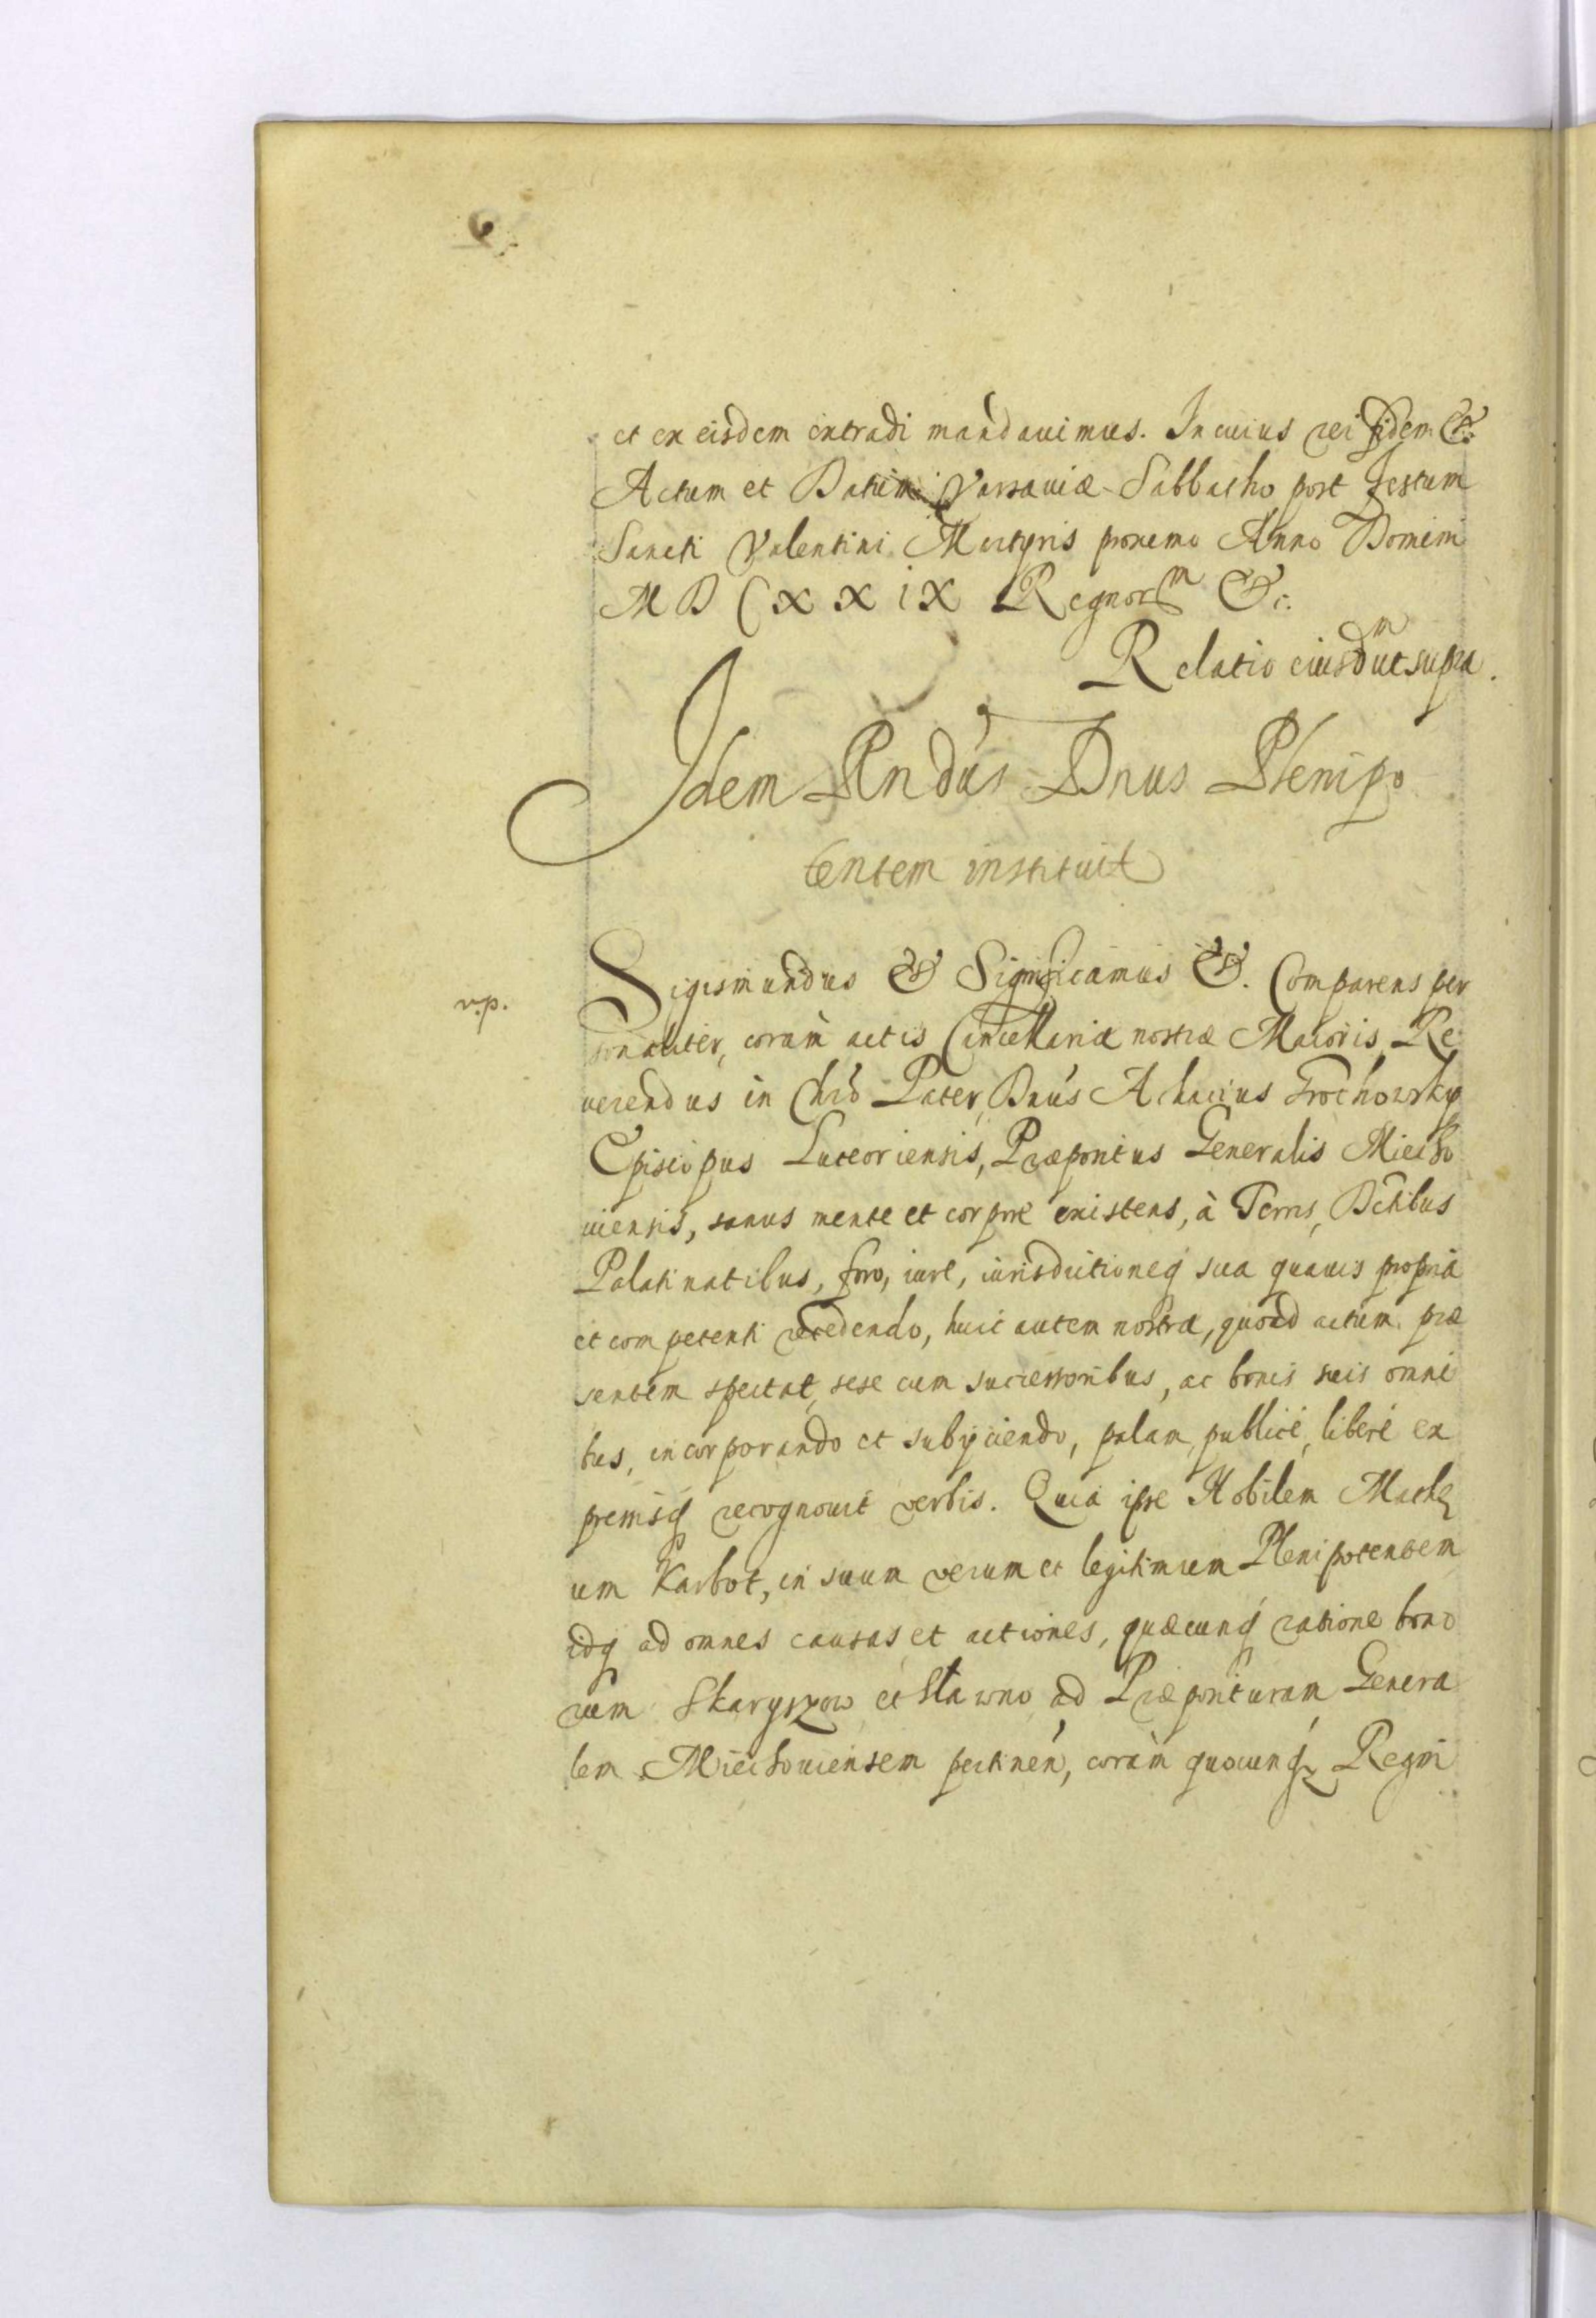 6
et ex eisdem extradi mandauimus. In cuius rei fidem &c.
Actum et Datum Varsauiæ Sabbatho post Festum
Sancti Valentini Martyris proximo Anno Domini
M D C x x i x Regnorm &c.
Relatio eiusdm ut supra.
Idem Rndus Dnus Plenipo
tentem instituit
Sigismundus & Significamus &. Comparens per
v.p.
sonaliter, coram actis Cancellariæ nostræ Maioris, Re
uerendus in Chro Pater, Dnus Achacius Grochowsky
Episcopus Luceoriensis, Præpositus Generalis Miecho
uiensis, sanus mente et corpore existens, à Terris, Dctibus
Palatinatibus, foro, iure, iurisdictioneq sua quauis propria
et competenti recedendo, huic autem nostræ, quoad actum præ
sentem spectat, sese cum successoribus, ac bonis suis omni
bus, incorporando et subijciendo, palam, publicè, liberè ex
pressisq recognouit verbis. Quia ipse Nobilem Mathę
um Karbot, in suum verum et legitimum Plenipotentem
idq ad omnes causas et actiones, quæcunq ratione bono
rum Skaryszow et Sławno ad Præposituram Genera
lem Miechouiensem pertinen, coram quocunq Regni